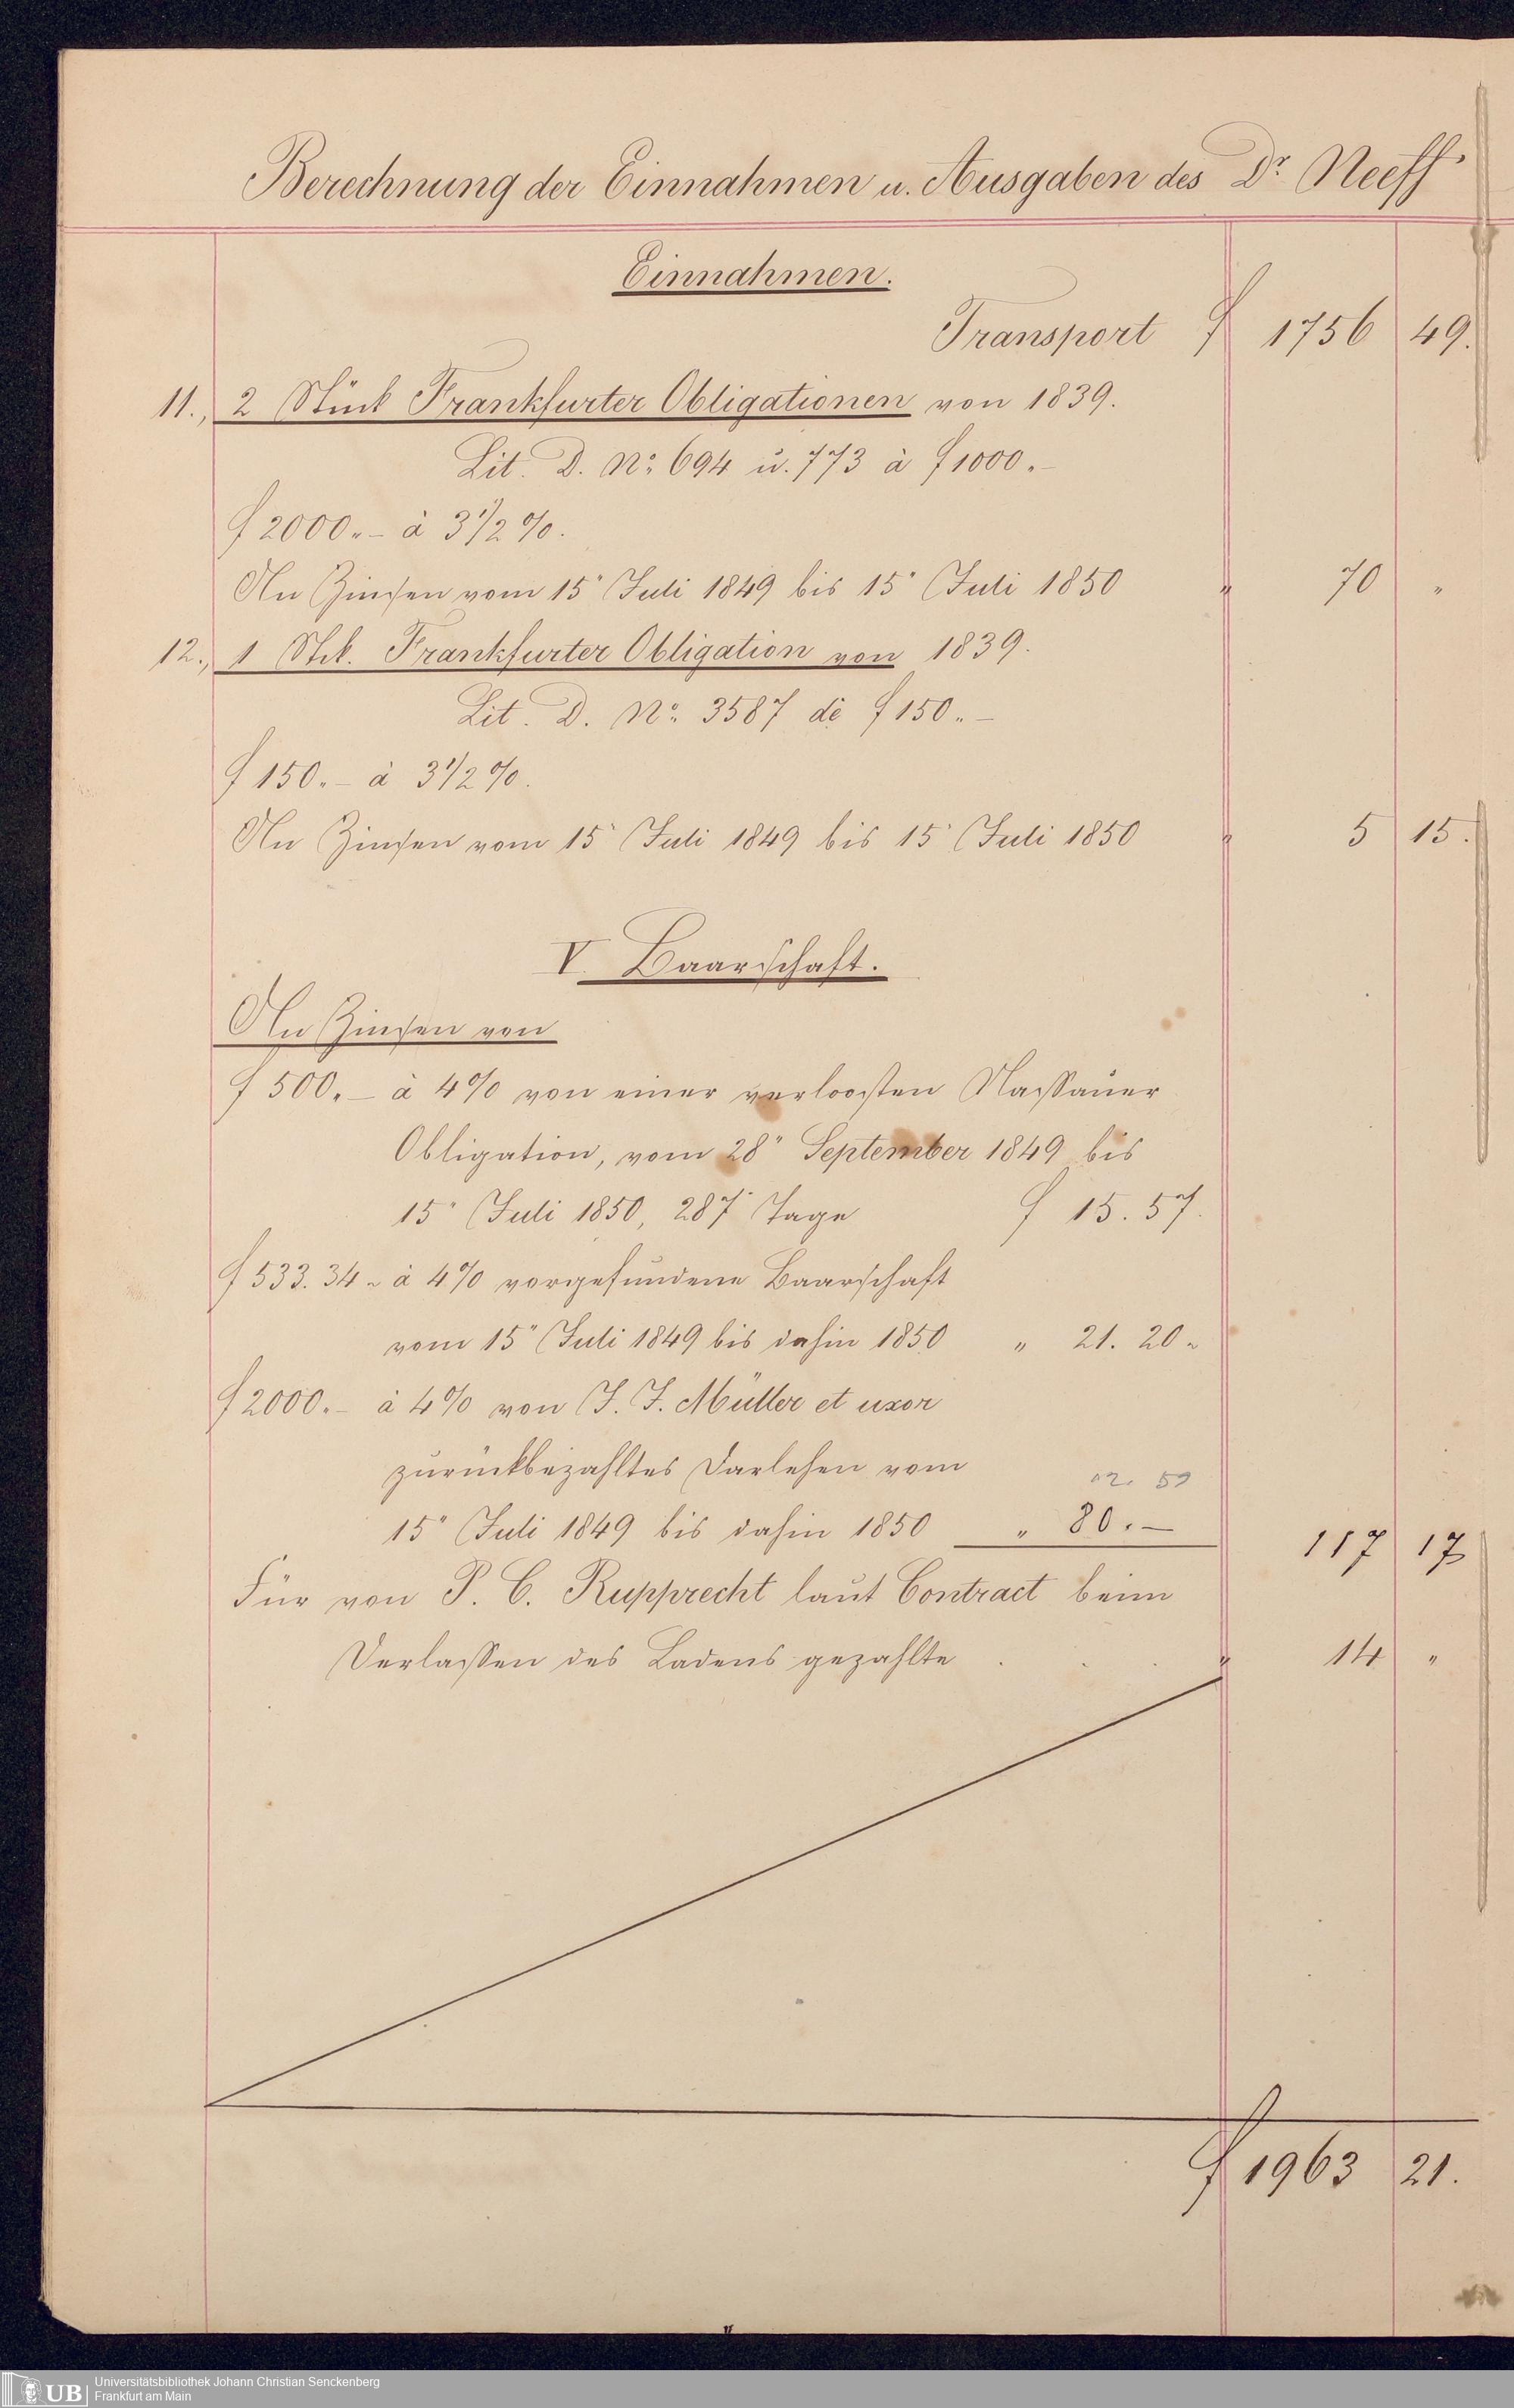 Berechnung der Einnahmen u. Ausgaben des Dr. Neeff
Einnahmen.
Transport f 1756 49.
11., 2 Stück Frankfurter Obligationen von 1839.
Lit. D. No. 694 u. 773 à f 1000.-
f 2000.- à 3 1/2 %.
An Zinsen vom 15" Juli 1849 bis 15" Juli 1850 " 70 "
12., 1 Stck. Frankfurter Obligation von 1839.
Lit. D. No. 3587 de f 150.-
f 150.- à 3 1/2 %.
An Zinsen vom 15" Juli 1849 bis 15" Juli 1850 " 5 15.
V. Baarschaft.
An Zinsen von
f 500.- à 4% von einer verloosten Nassauer
Obligation, vom 28" September 1849 bis
15" Juli 1850, 287 Tage f 15. 57.
f 533. 34 " à 4% vorgefundene Baarschaft
vom 15" Juli 1849 bis dahin 1850 " 21. 20 "
f 2000.- à 4% von J. J. Müller et uxor
zurückbezahltes Darlehen vom
15" Juli 1849 bis dahin 1850 " 80.- 117 17
Für von P. C. Rupprecht laut Contract beim
Verlassen des Ladens gezahlte . . . " 14 "
f 1963 21.
UB Universitätsbibliothek Johann Christian Senckenberg
Frankfurt am Main